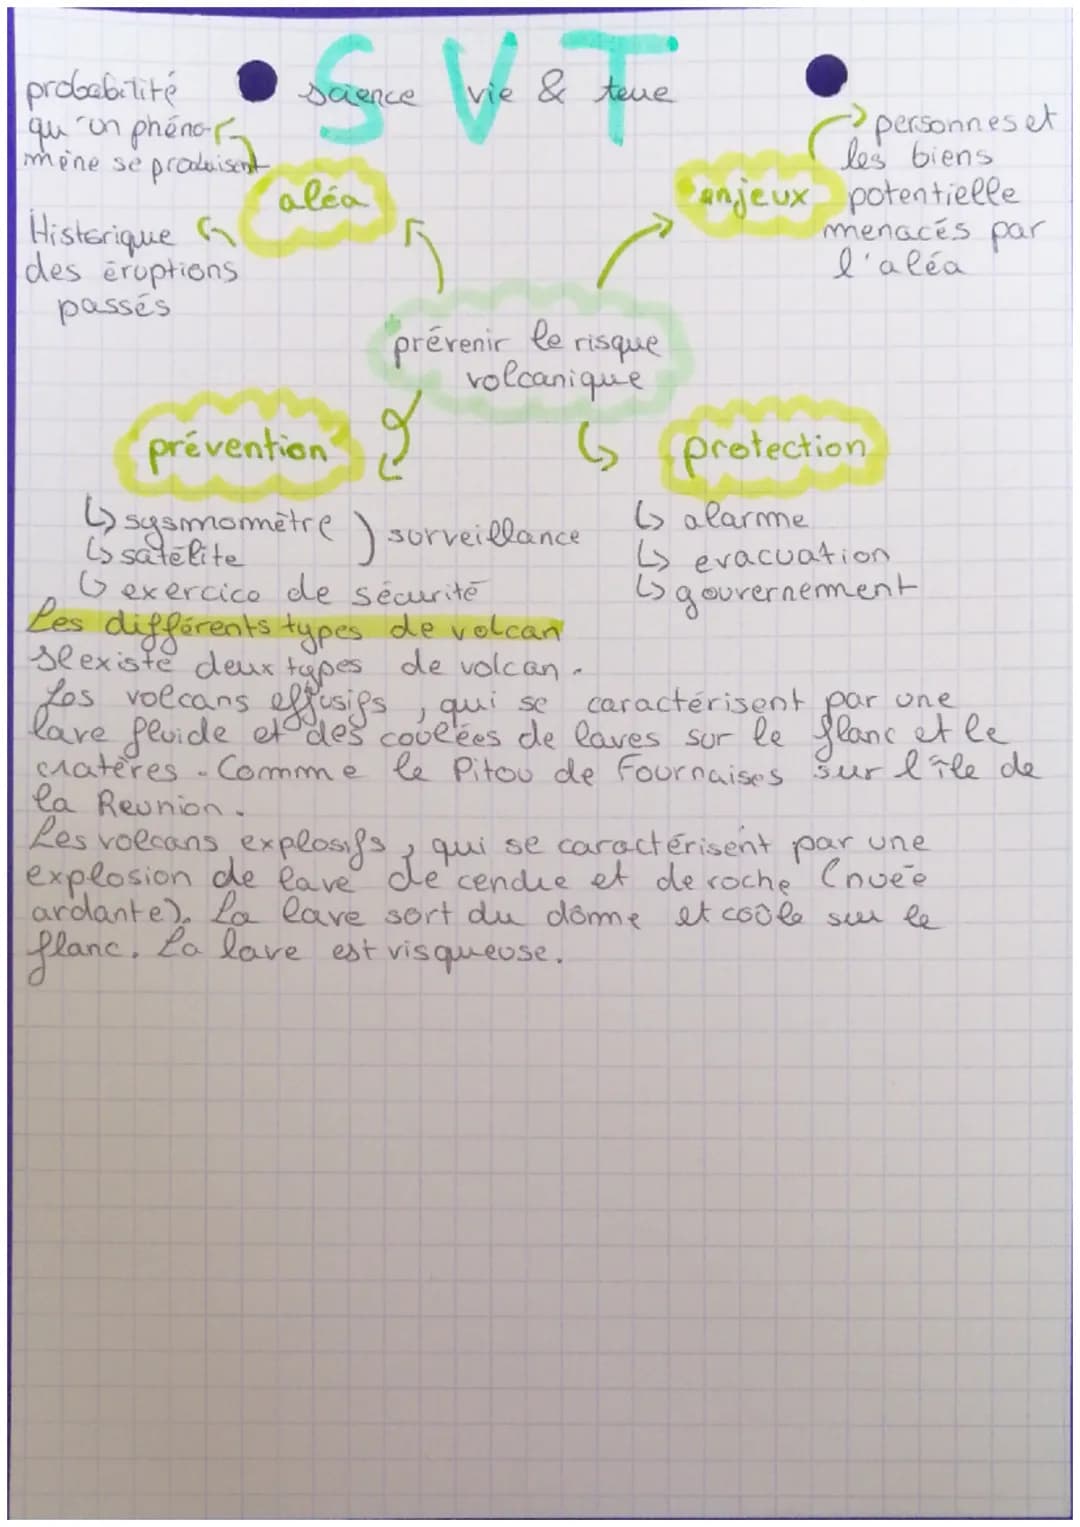 SVT
science vie & terre
probabilité
qu'un phéno-
mène se produisent
aléa
Historique
des éruptions
passés
enjeux
personnes et
les biens
potentielle
menacés par
l'aléa
prévenir le risque
volcanique
prévention
↳ sysmomètre
↳ satélite
) surveillance
↳ exercice de sécurité
protection
↳ alarme
↳ evacuation
↳ gouvernement
Les différents types de volcan
Il existe deux types de volcan.
Les volcans effusifs, qui se caractérisent par une
lave fluide et des coulées de laves sur le flanc et le
cratères. Comme le Pitou de Fournaises sur l'île de
la Reunion.
Les volcans explosifs, qui se caractérisent par une
explosion de lave de cendre et de roche (nuée
ardante). La lave sort du dôme et coûle sur le
flanc. La lave est visqueuse.